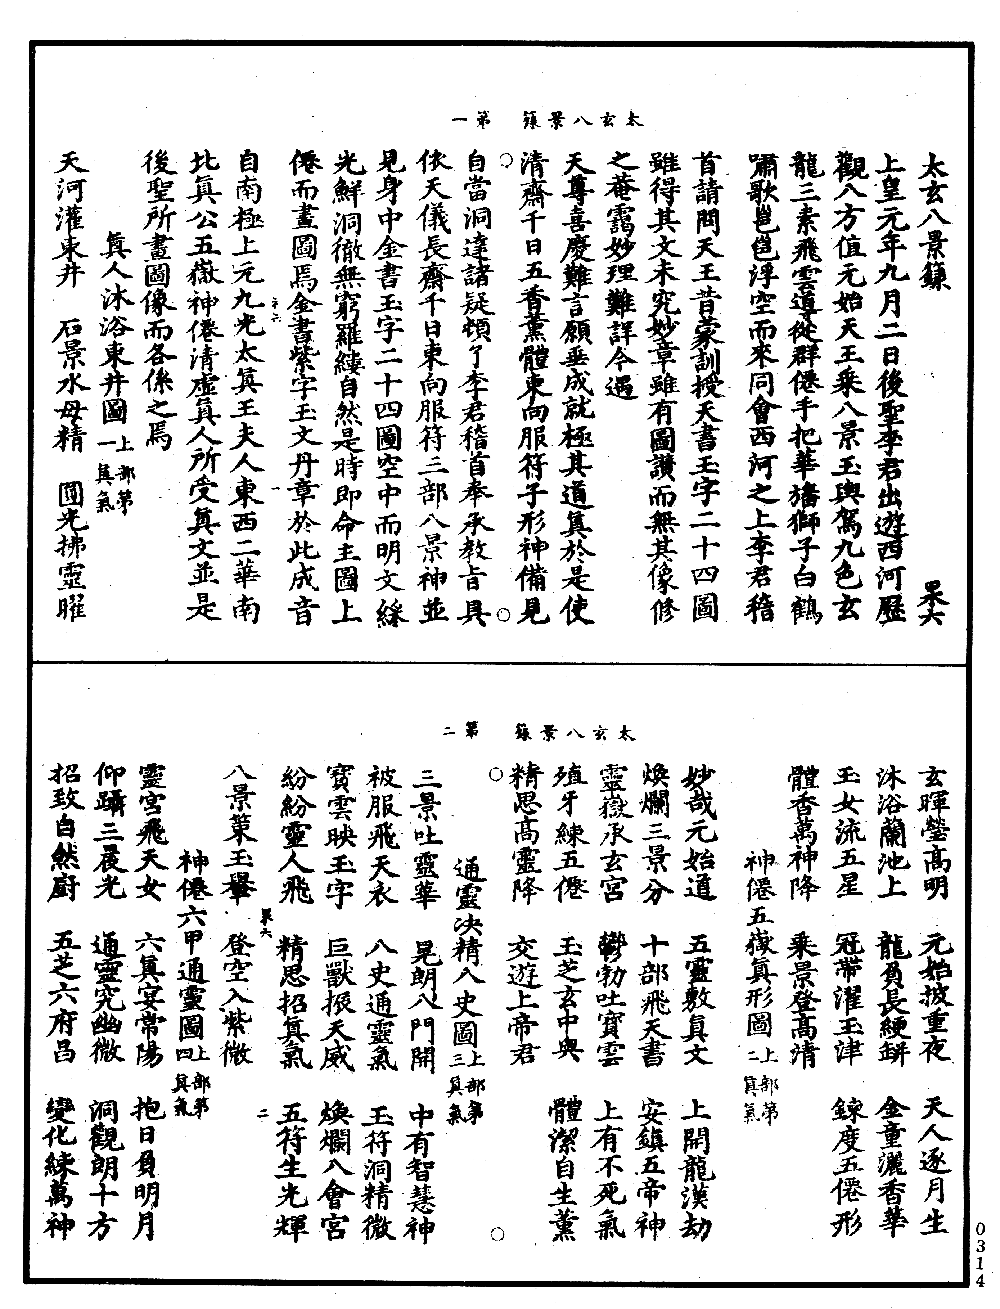 太玄八景籙　第一
太玄八景籙　杲六
上皇元年九月二日後聖李君出遊西河歷
觀八方值元始天王乘八景玉輿駕九色玄
龍三素飛雲導從群僊手把華旛獅子白鶴
嘯歌邕邕浮空而來同會西河之上李君稽
首請問天王昔蒙訓授天書玉字二十四圖
雖得其文未究妙章雖有圖讚而無其像修
之菴靄妙理難詳今遇
天尊喜慶難言願垂成就極其道真於是使
清齋千日五香薰體東向服符子形神備見
自當洞達諸疑頓了李君稽首奉承教旨具
依天儀長齋千日東向服符三部八景神並
見身中金書玉字二十四圖空中而明文綵
光鮮洞徹無窮羅縷自然是時即命主圖上
僊而畫圖焉金書紫字玉文丹章於此成音
杲六　一
自南極上元九光太真王夫人東西二華南
北真公五嶽神僊清虛真人所受真文並是
後聖所畫圖像而各係之焉
真人沐浴東井圖上部第一真氣
天河灌東井　石景水母精　圓光拂靈曜
太玄八景籙　第二
玄暉瑩高明　元始披重夜　天人逐月生
沐浴蘭池上　龍負長綆缾　金童灑香華
玉女流五星　冠帶濯玉津　鍊度五僊形
體香萬神降　乘景登高清
神僊五嶽真形圖上部第二真氣
妙哉元始道　五靈敷真文　上開龍漢劫
煥爛三景分　十部飛天書　安鎮五帝神
靈嶽承玄宮　鬱勃吐寶雲　上有不死氣
殖牙練五僊　玉芝玄中奧　體潔自生薰
精思高靈降　交遊上帝君
通靈決精八史圖上部第三真氣
三景吐靈華　晃朗八門開　中有智慧神
被服飛天衣　八史通靈氣　玉符洞精微
寶雲映玉字　巨獸振天威　煥爛八會宮
紛紛靈人飛　精思招真氣　五符生光輝
杲六　二
八景策玉轝　登空入紫微
神僊六甲通靈圖上部第四真氣
靈宮飛天女　六真宴常陽　抱日負明月
仰躡三晨光　通靈究幽微　洞觀朗十方
招致自然廚　五芝六府昌　變化練萬神
0314